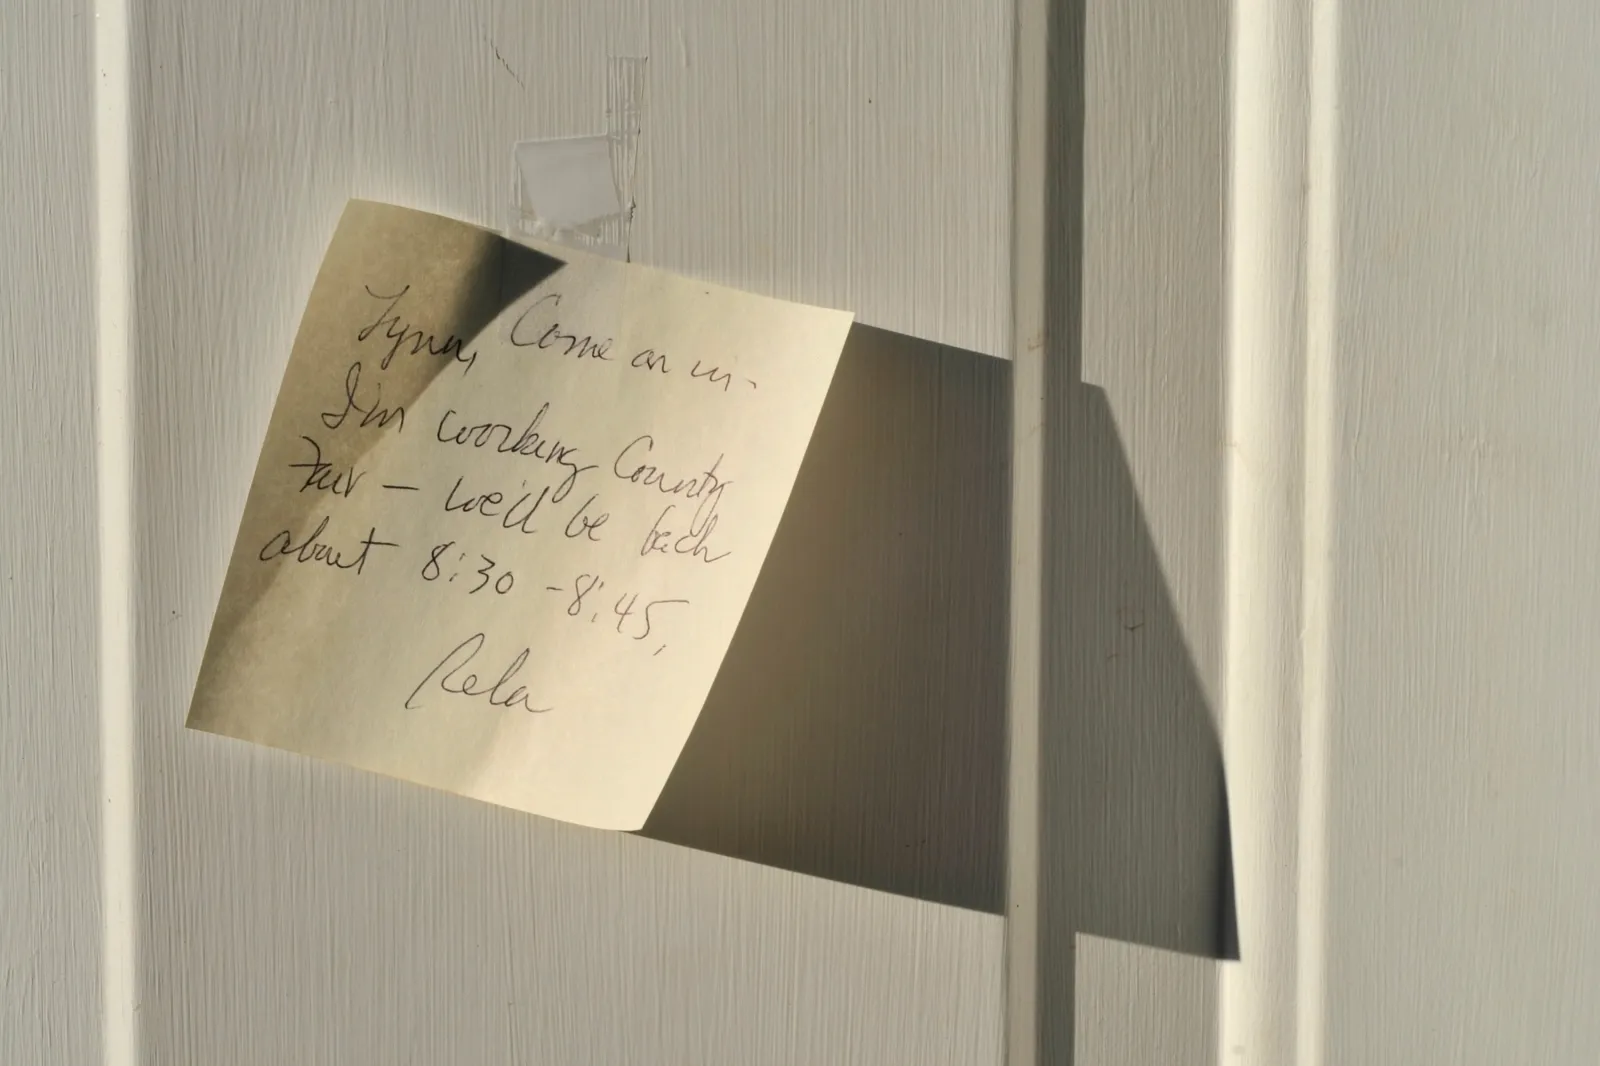 Lynn, Come on in -
I'm working County
Fair — we'll be back
about 8:30 - 8:45,
Rela